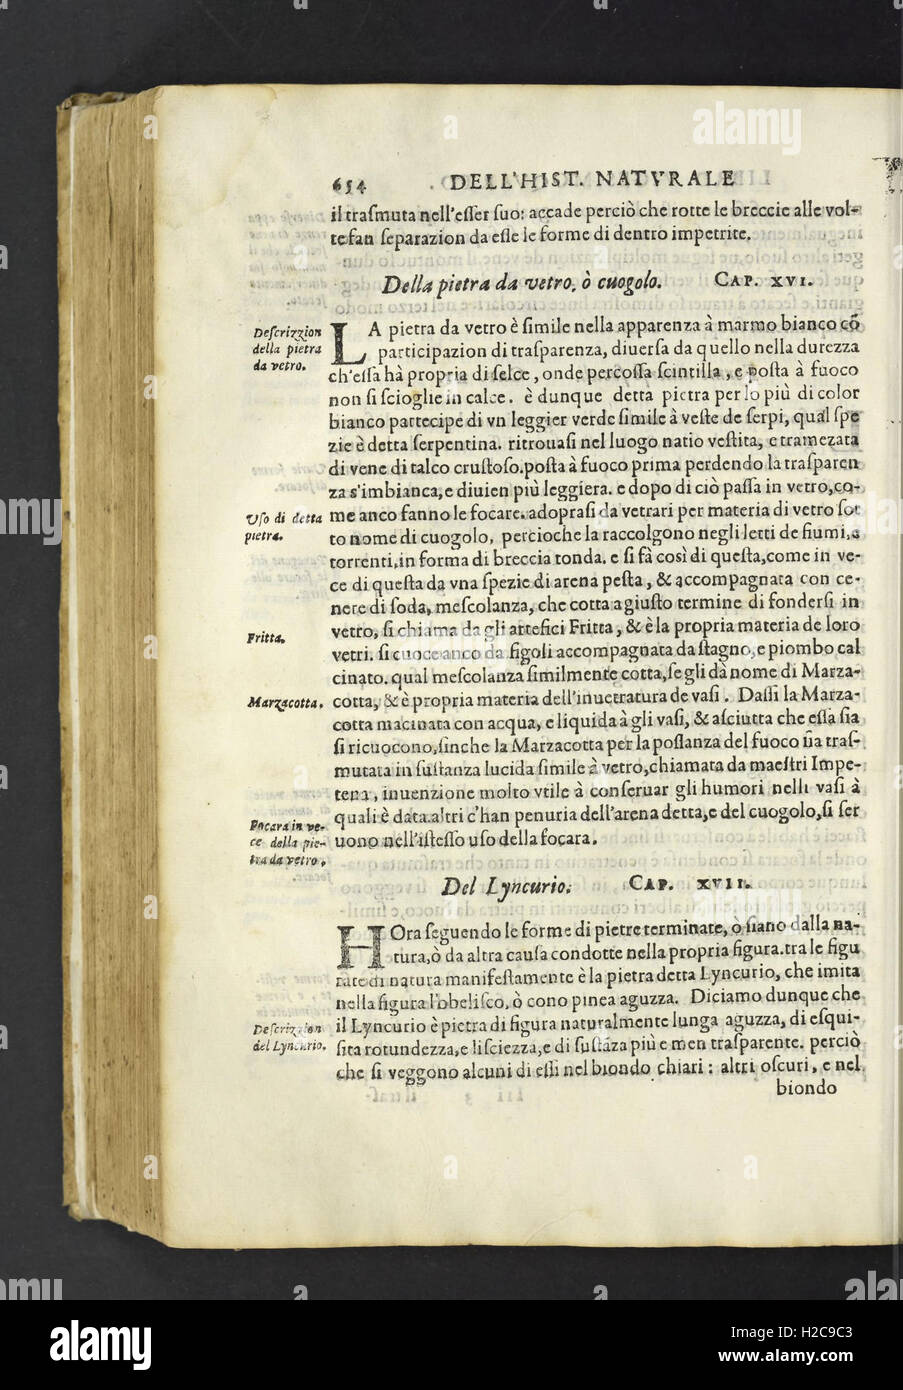 654 DELL'HIST. NATVRALE
il traſmuta nell'eſſer ſuo: accade perciò che rotte le breccie alle vol-
te fan ſeparazion da eſſe le forme di dentro impetrite.
Della pietra da vetro, ò cuogolo. CAP. XVI.
Deſcrizzion
della pietra
da vetro.
LA pietra da vetro è ſimile nella apparenza à marmo bianco cõ
participazion di traſparenza, diuerſa da quello nella durezza
ch'eſſa hà propria di ſelce, onde percoſſa ſcintilla, e poſta à fuoco
non ſi ſcioglie in calce. è dunque detta pietra per lo più di color
bianco partecipe di vn leggier verde ſimile à veſte de ſerpi, qual ſpe
zie è detta ſerpentina. ritrouaſi nel luogo natio veſtita, e tramezata
di vene di talco cruſtoſo. poſta à fuoco prima perdendo la traſparen
za s'imbianca, e diuien più leggiera. e dopo di ciò paſſa in vetro, co-
Vſo di detta
pietra.
me anco fanno le focare. adopraſi da vetrari per materia di vetro ſot
to nome di cuogolo, percioche la raccolgono negli letti de fiumi, e
torrenti, in forma di breccia tonda. e ſi fà così di queſta, come in ve-
ce di queſta da vna ſpezie di arena peſta, & accompagnata con ce-
nere di ſoda, meſcolanza, che cotta a giuſto termine di fonderſi in
Fritta.
vetro, ſi chiama da gli artefici Fritta, & è la propria materia de loro
vetri. ſi cuoce anco da figoli accompagnata da ſtagno, e piombo cal
cinato. qual meſcolanza ſimilmente cotta, ſe gli dà nome di Marza-
Marzacotta.
cotta, & è propria materia dell'inuetratura de vaſi. Daſſi la Marza-
cotta macinata con acqua, e liquida à gli vaſi, & aſciutta che eſſa ſia
ſi ricuocono, ſinche la Marzacotta per la poſſanza del fuoco ſia traſ-
mutata in ſuſtanza lucida ſimile à vetro, chiamata da maeſtri Impe-
tena, inuenzione molto vtile à conſeruar gli humori nelli vaſi à
Focara in ve-
ce della pie-
tra da vetro.
quali è data. altri c'han penuria dell'arena detta, e del cuogolo, ſi ſer
uono nell'iſteſſo uſo della focara.
Del Lyncurio. CAP. XVII.
HOra ſeguendo le forme di pietre terminate, ò ſiano dalla na-
tura, ò da altra cauſa condotte nella propria figura. tra le figu
rate di natura manifeſtamente è la pietra detta Lyncurio, che imita
nella figura l'obeliſco, ò cono pinea aguzza. Diciamo dunque che
Deſcrizzion
del Lyncurio.
il Lyncurio è pietra di figura naturalmente lunga aguzza, di eſqui-
ſita rotundezza, e liſciezza, e di ſuſtãza più e men traſparente. perciò
che ſi veggono alcuni di eſſi nel biondo chiari: altri oſcuri, e nel
biondo
alamy
H2C9C3
www.alamy.com